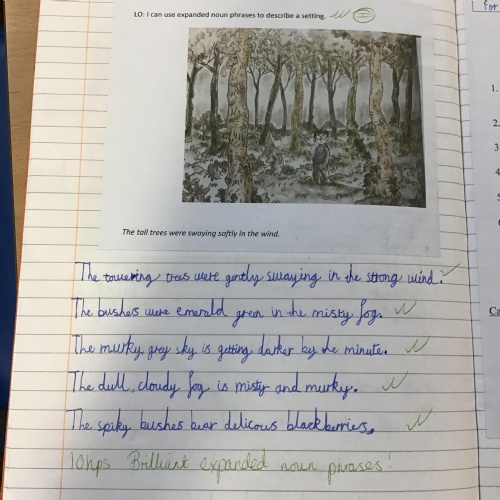 LO: I can use expanded noun phrases to describe a setting.
For
1.
2.
3
4
The tall trees were swaying softly in the wind.
The towering trees were gently swaying in the strong wind.
The bushes were emerald green in the misty fog.
Ca
The murky, grey sky is getting darker by the minute.
The dull, cloudy fog is misty and murky.
The spiky bushes bear delicous blackberries.
10hps Brilliant expanded noun phrases!